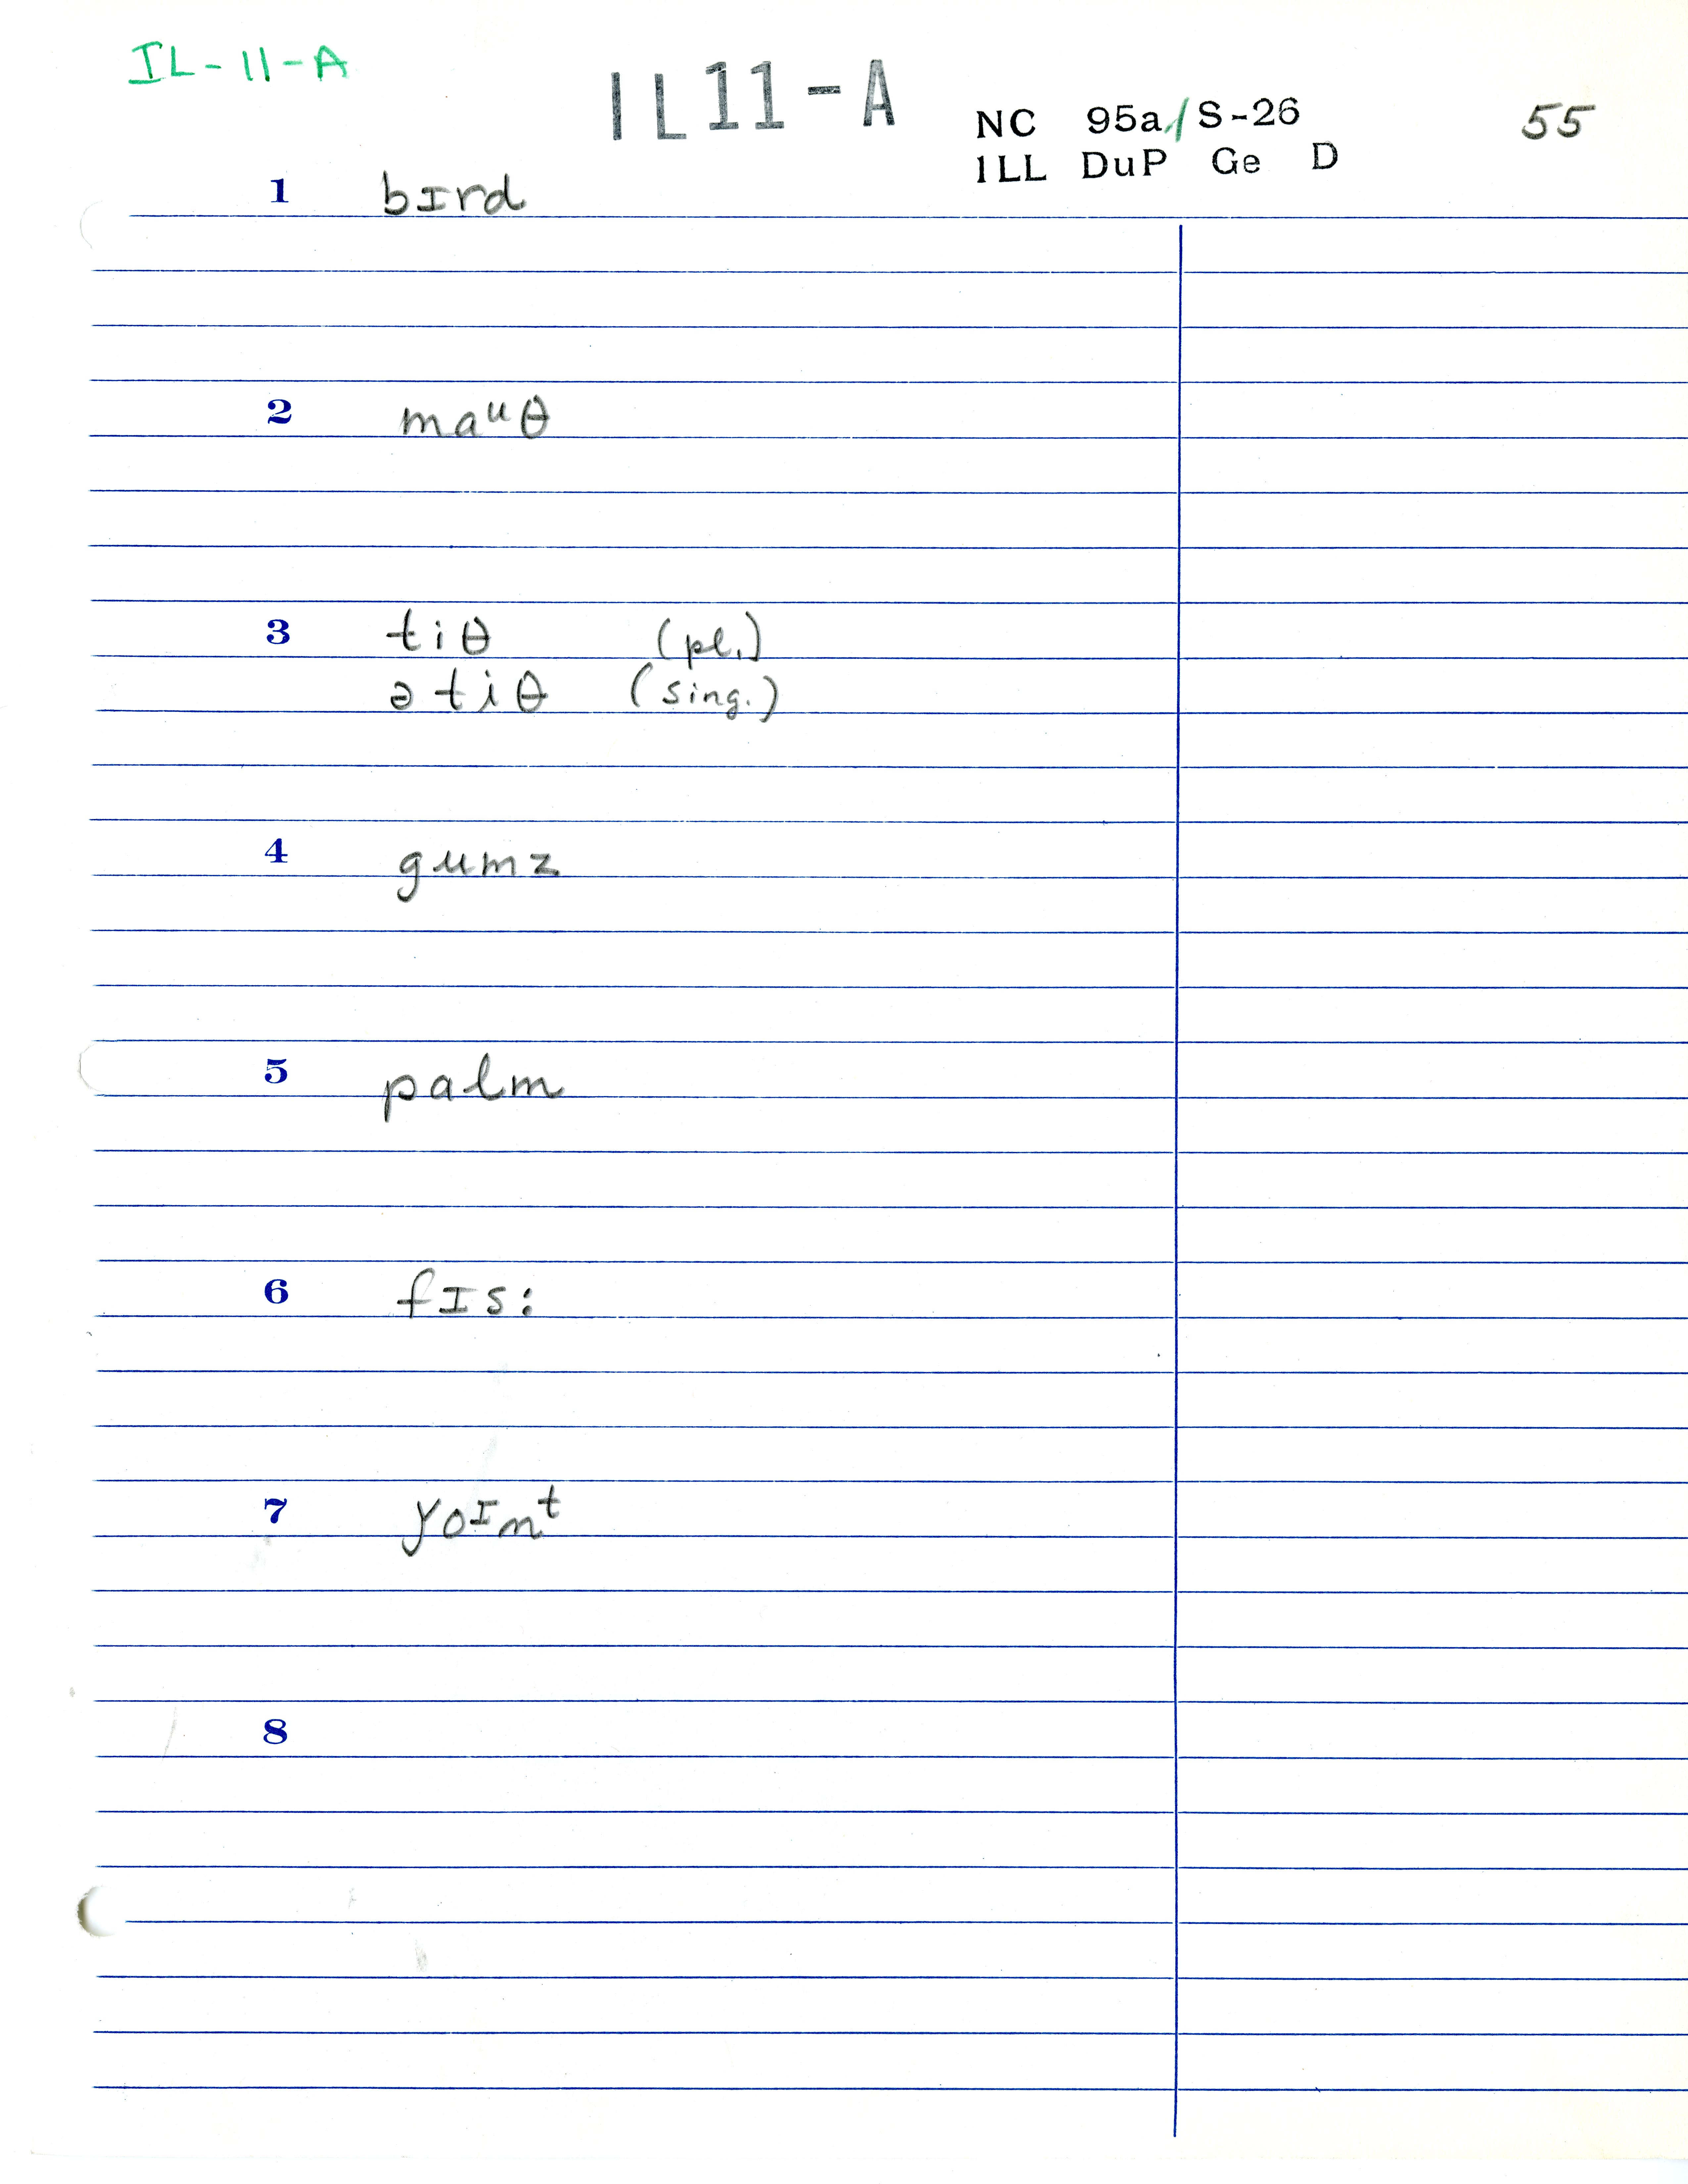 IL-11-A
IL11-A
NC 95a/S-26
ILL DuP Ge D
55
1 bɪrd
2 maᵘθ
3 tiθ (pl.)
ə tiθ (sing.)
4 gumz
5 palm
6 fɪs:
7 ɣoᶦnᵗ
8